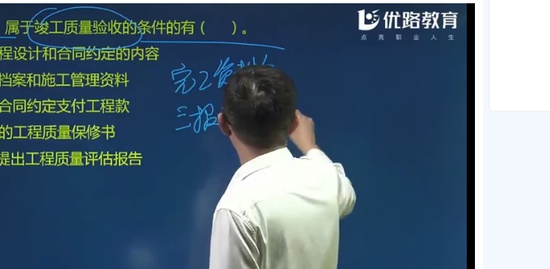 属于竣工质量验收的条件的有( )。
优路教育
点亮职业人生
程设计和合同约定的内容
档案和施工管理资料
合同约定支付工程款
的工程质量保修书
提出工程质量评估报告
完工
三报